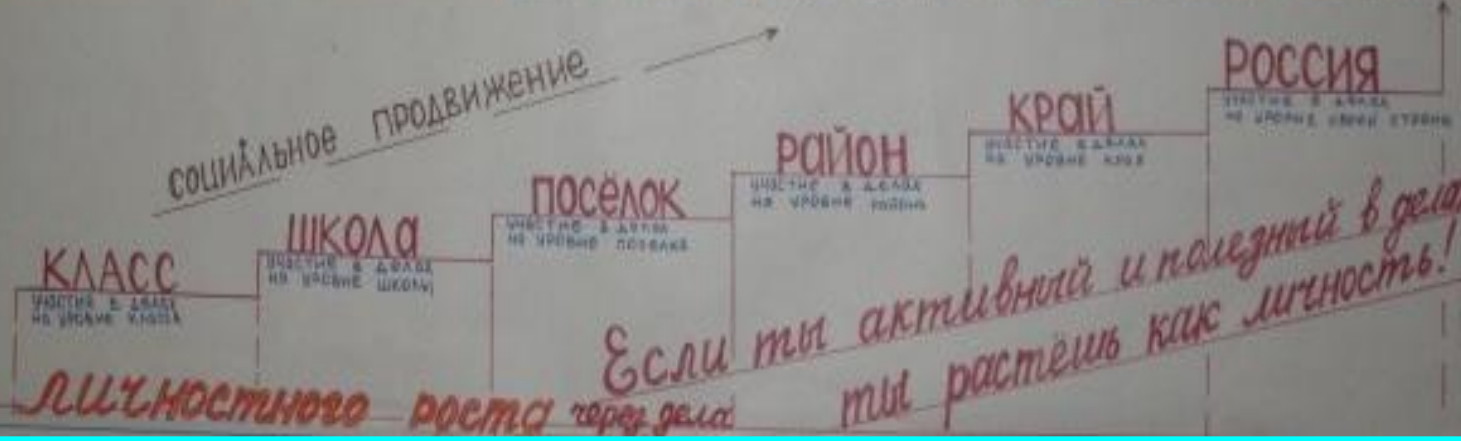 СОЦИАЛЬНОЕ ПРОДВИЖЕНИЕ
КЛАСС
УЧАСТИЕ В ДЕЛАХ
НА УРОВНЕ КЛАССА
ШКОЛА
УЧАСТИЕ В ДЕЛАХ
НА УРОВНЕ ШКОЛЫ
ПОСЁЛОК
УЧАСТИЕ В ДЕЛАХ
НА УРОВНЕ ПОСЕЛКА
РАЙОН
УЧАСТИЕ В ДЕЛАХ
НА УРОВНЕ РАЙОНА
КРАЙ
УЧАСТИЕ В ДЕЛАХ
НА УРОВНЕ КРАЯ
РОССИЯ
УЧАСТИЕ В ДЕЛАХ
НА УРОВНЕ СВОЕЙ СТРАНЫ
Если ты активный и полезный в делах
ты растёшь как личность!
личностного роста через дела